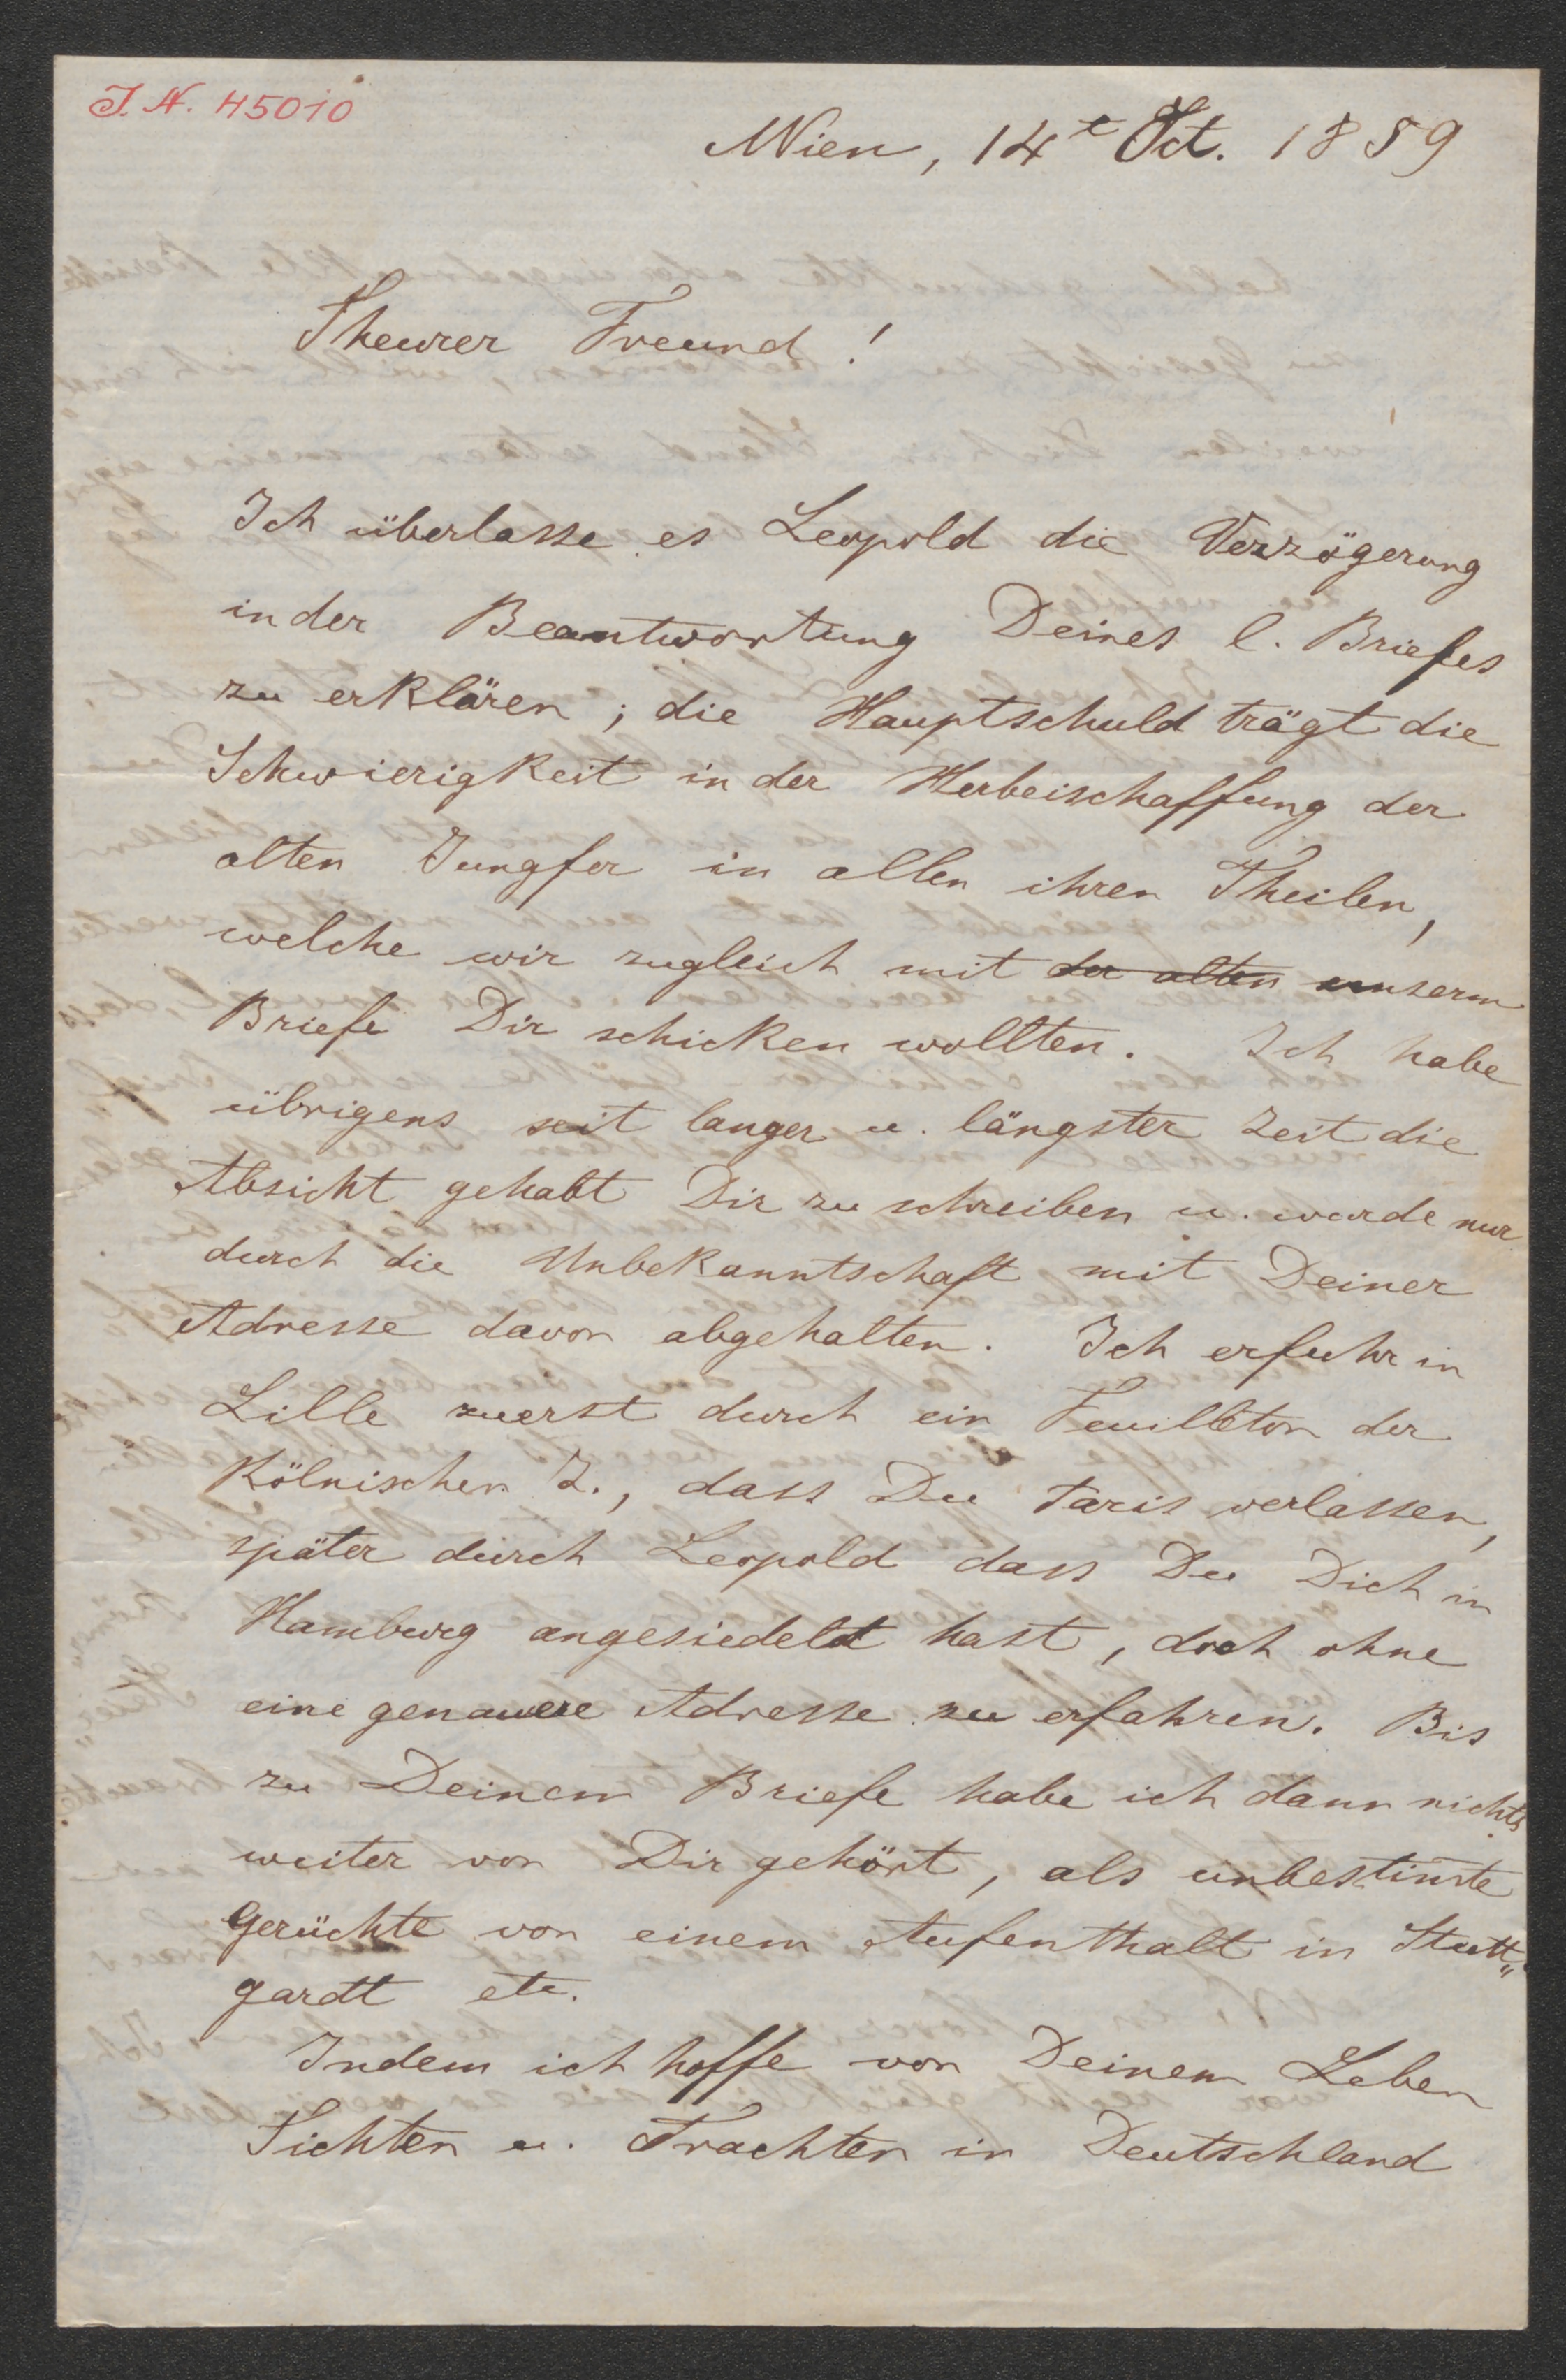 J. N. 45010
Wien, 14t Oct. 1859
Theurer Freund!
Ich überlasse es Leopold die Verzögerung
in der Beantwortung Deines l. Briefes
zu erklären; die Hauptschuld trägt die
Schwierigkeit in der Herbeischaffung der
alten Jungfer in allen ihren Theilen,
welche wir zugleich mit der alten unserm
Briefe Dir schicken wollten. Ich habe
übrigens seit langer u. längster Zeit die
Absicht gehabt Dir zu schreiben u. wurde nur
durch die Unbekanntschaft mit Deiner
Adresse davon abgehalten. Ich erfuhr in
Lille zuerst durch ein Feuilleton der
Kölnischen Z., dass Du Paris verlassen,
später durch Leopold dass Du Dich in
Hamburg angesiedelt hast, doch ohne
eine genauere Adresse zu erfahren. Bis
zu Deinem Briefe habe ich dann nichts
weiter von Dir gehört, als unbestim̅te
Gerüchte von einem Aufenthalt in Stutt„
gardt etc.
Indem ich hoffe von Deinem Leben
Tichten u. Trachten in Deutschland